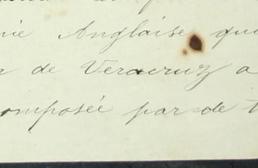 nie Anglaise qui
r de Veracruz a
omposée par de t